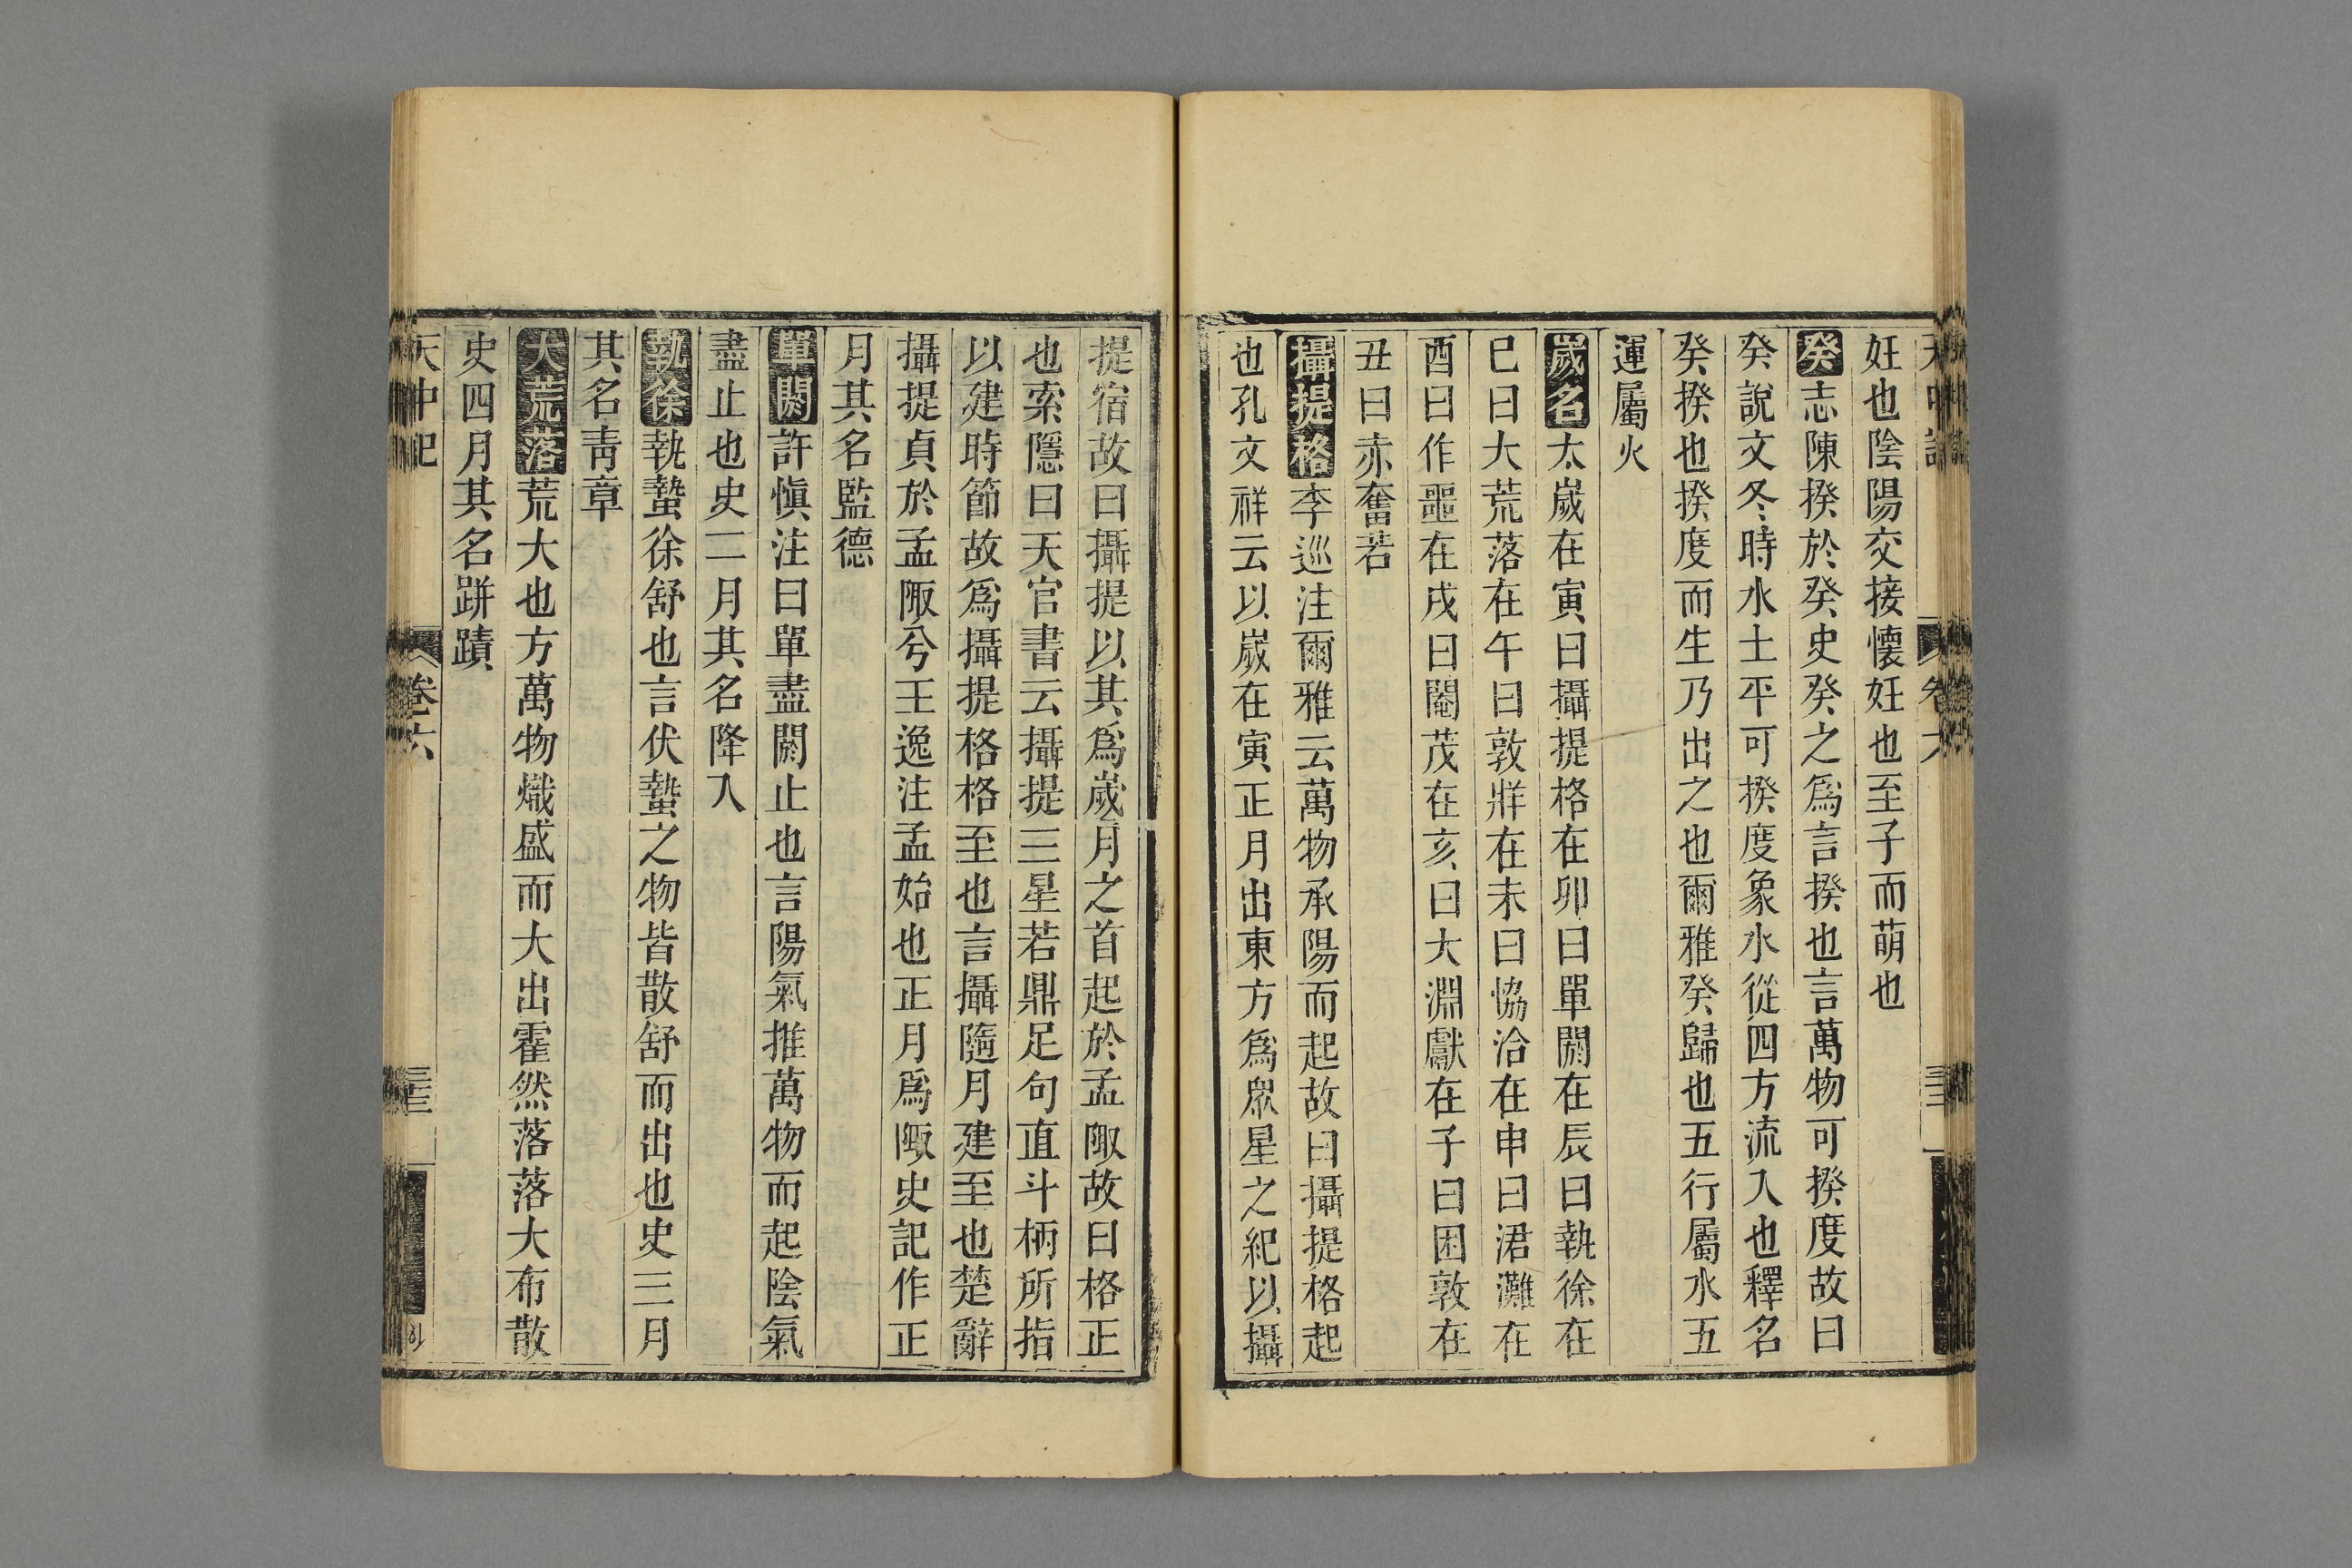 妊也陰陽交接懷妊也至子而萌也
癸志陳揆於癸史癸之爲言揆也言萬物可揆度故曰
癸說文冬時水土平可揆度象水從四方流入也釋名
癸揆也揆度而生乃出之也爾雅癸歸也五行屬水五
運屬火
歲名太歲在寅曰攝提格在卯曰單閼在辰曰執徐在
巳曰大荒落在午曰敦牂在未曰協洽在申曰涒灘在
酉曰作噩在戌曰閹茂在亥曰大淵獻在子曰困敦在
丑曰赤奮若
攝提格李巡注爾雅云萬物承陽而起故曰攝提格起
也孔文祥云以歲在寅正月出東方爲衆星之紀以攝
提宿故曰攝提以其爲歲月之首起於孟陬故曰格正
也索隱曰天官書云攝提三星若鼎足句直斗柄所指
以建時節故爲攝提格格至也言攝隨月建至也楚辭
攝提貞於孟陬兮王逸注孟始也正月爲陬史記作正
月其名監德
單閼許愼注曰單盡閼止也言陽氣推萬物而起陰氣
盡止也史二月其名降入
執徐執蟄徐舒也言伏蟄之物皆散舒而出也史三月
其名靑章
大荒落荒大也方萬物熾盛而大出霍然落落大布散
史四月其名跰蹟
天中記
卷六